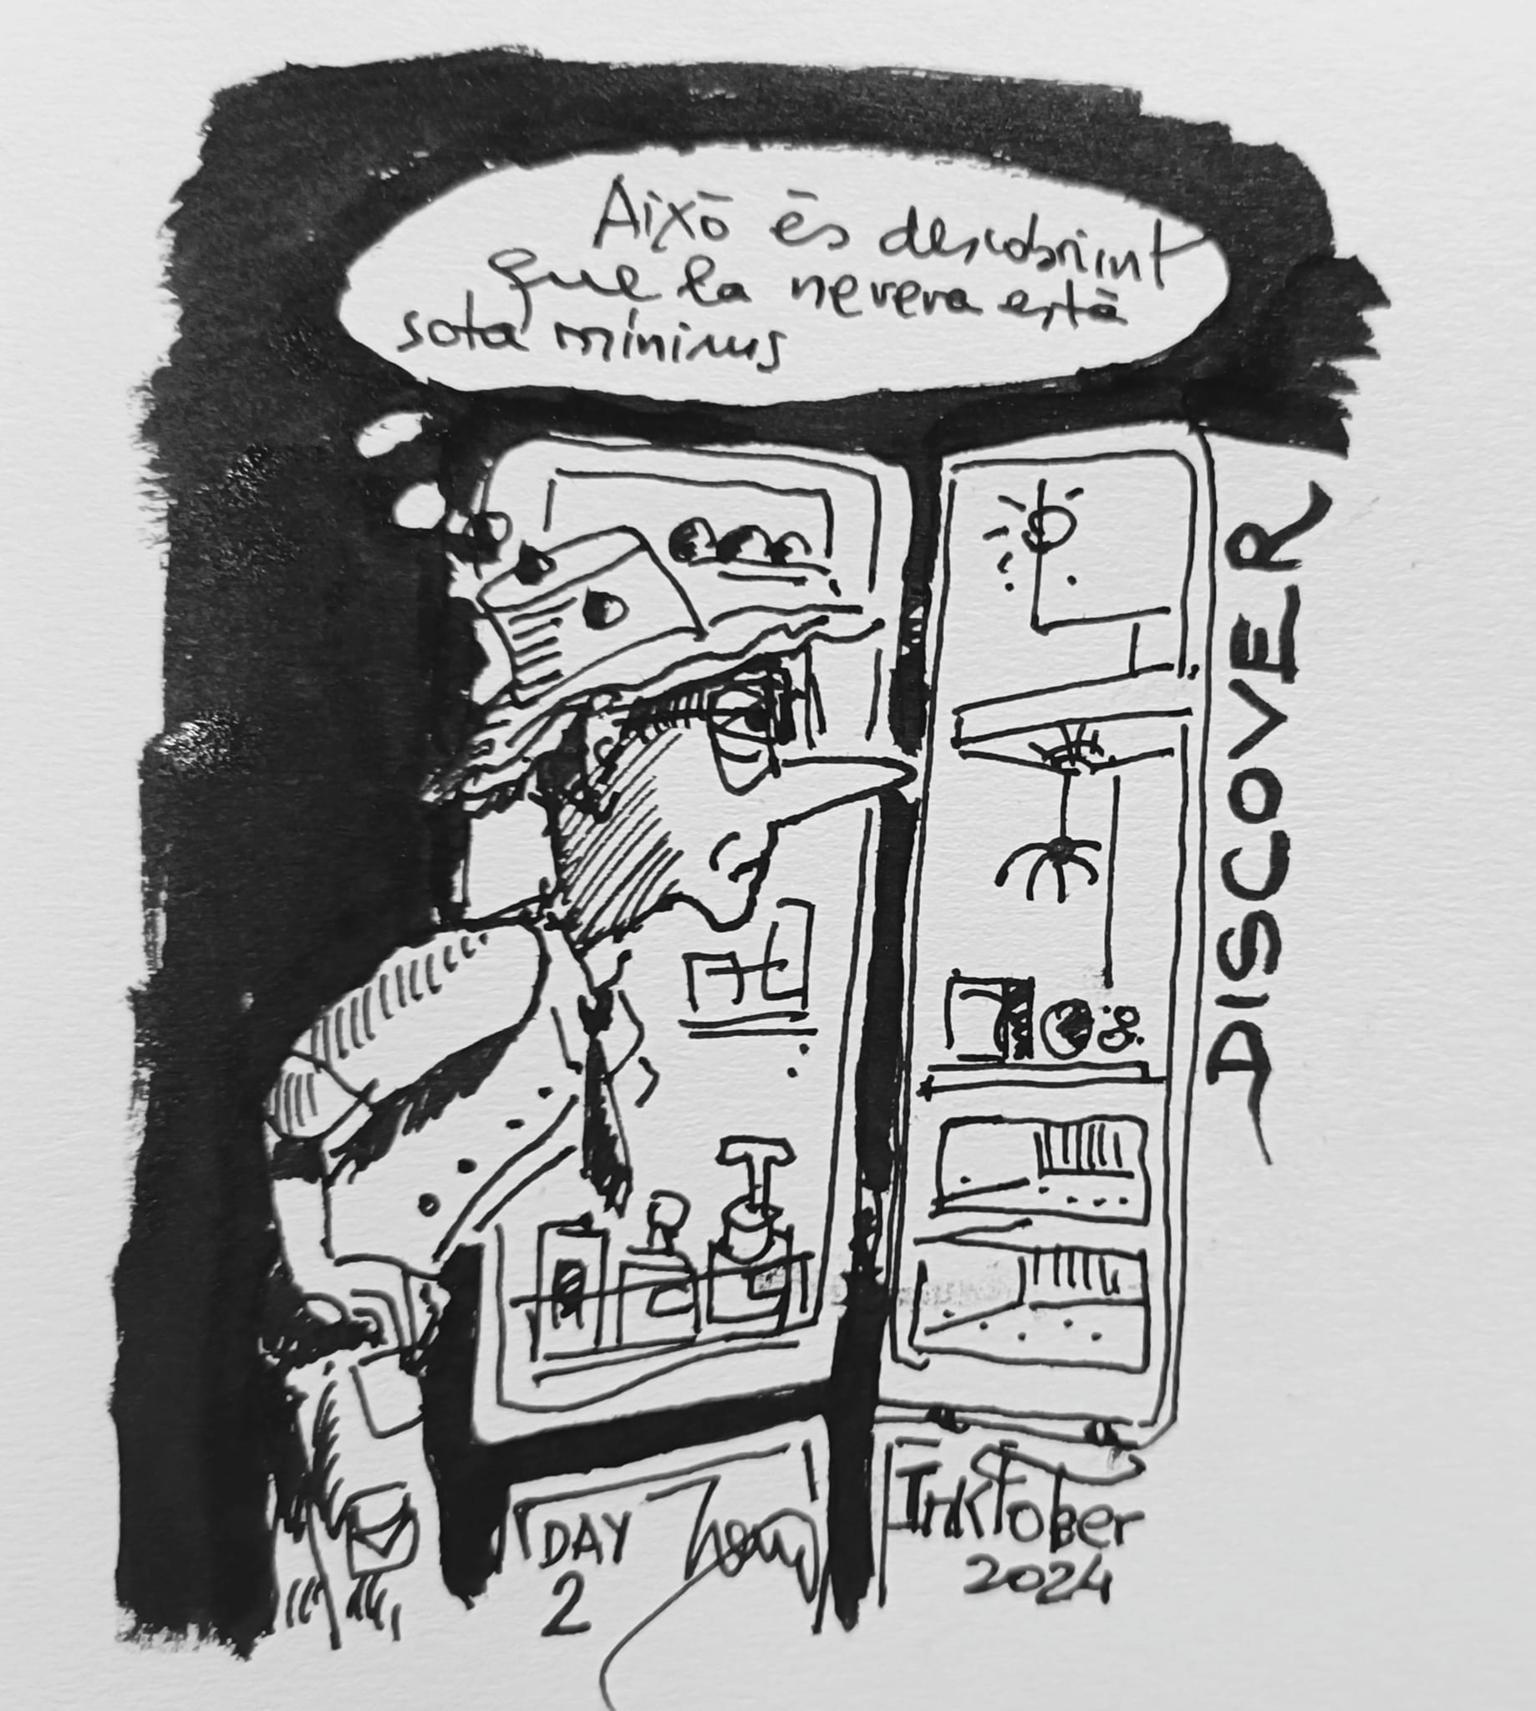 Això és descobriint
que la nevera està
sota mínimus
DISCOVER
DAY
2
InkTober
2024